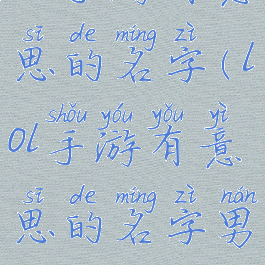 sī de míng zì
思的名字(l
shǒu yóu yǒu yì
ol手游有意
sī de míng zì nán
思的名字男